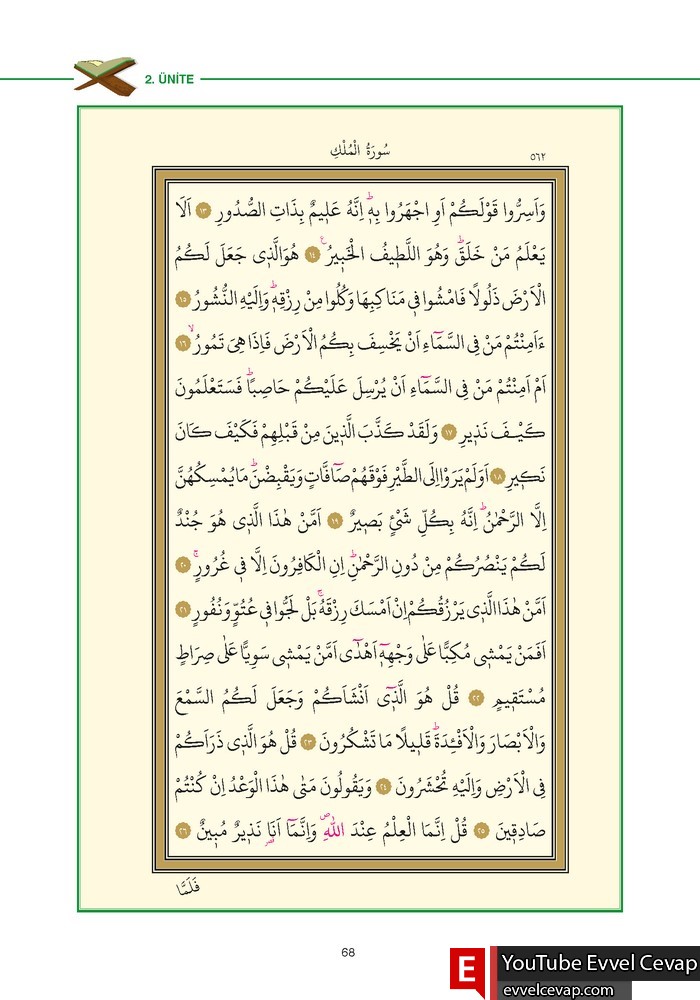 2. ÜNİTE
سُورَةُ الْمُلْكِ
٥٦٢
وَاَسِرُّوا قَوْلَكُمْ اَوِ اجْهَرُوا بِهٖۜ اِنَّهُ عَلٖيمٌ بِذَاتِ الصُّدُورِ ﴿١٣﴾ اَلَا
يَعْلَمُ مَنْ خَلَقَۜ وَهُوَ اللَّطٖيفُ الْخَبٖيرُ۟ ﴿١٤﴾ هُوَ الَّذٖى جَعَلَ لَكُمُ
الْاَرْضَ ذَلُولًا فَامْشُوا فٖى مَنَاكِبِهَا وَكُلُوا مِنْ رِزْقِهٖۜ وَاِلَيْهِ النُّشُورُ ﴿١٥﴾
ءَاَمِنْتُمْ مَنْ فِى السَّمَٓاءِ اَنْ يَخْسِفَ بِكُمُ الْاَرْضَ فَاِذَا هِىَ تَمُورُۙ ﴿١٦﴾
اَمْ اَمِنْتُمْ مَنْ فِى السَّمَٓاءِ اَنْ يُرْسِلَ عَلَيْكُمْ حَاصِبًاۜ فَسَتَعْلَمُونَ
كَيْفَ نَذٖيرِ ﴿١٧﴾ وَلَقَدْ كَذَّبَ الَّذٖينَ مِنْ قَبْلِهِمْ فَكَيْفَ كَانَ
نَكٖيرِ ﴿١٨﴾ اَوَلَمْ يَرَوْا اِلَى الطَّيْرِ فَوْقَهُمْ صَٓافَّاتٍ وَيَقْبِضْنَۜ مَا يُمْسِكُهُنَّ
اِلَّا الرَّحْمٰنُۜ اِنَّهُ بِكُلِّ شَىْءٍ بَصٖيرٌ ﴿١٩﴾ اَمَّنْ هٰذَا الَّذٖى هُوَ جُنْدٌ
لَكُمْ يَنْصُرُكُمْ مِنْ دُونِ الرَّحْمٰنِۜ اِنِ الْكَافِرُونَ اِلَّا فٖى غُرُورٍۚ ﴿٢٠﴾
اَمَّنْ هٰذَا الَّذٖى يَرْزُقُكُمْ اِنْ اَمْسَكَ رِزْقَهُۚ بَلْ لَجُّوا فٖى عُتُوٍّ وَنُفُورٍ ﴿٢١﴾
اَفَمَنْ يَمْشٖى مُكِبًّا عَلٰى وَجْهِهٖٓ اَهْدٰٓى اَمَّنْ يَمْشٖى سَوِيًّا عَلٰى صِرَاطٍ
مُسْتَقٖيمٍ ﴿٢٢﴾ قُلْ هُوَ الَّذٖٓى اَنْشَاَكُمْ وَجَعَلَ لَكُمُ السَّمْعَ
وَالْاَبْصَارَ وَالْاَفْـِٔدَةَۜ قَلٖيلًا مَا تَشْكُرُونَ ﴿٢٣﴾ قُلْ هُوَ الَّذٖى ذَرَاَكُمْ
فِى الْاَرْضِ وَاِلَيْهِ تُحْشَرُونَ ﴿٢٤﴾ وَيَقُولُونَ مَتٰى هٰذَا الْوَعْدُ اِنْ كُنْتُمْ
صَادِقٖينَ ﴿٢٥﴾ قُلْ اِنَّمَا الْعِلْمُ عِنْدَ اللّٰهِۖ وَاِنَّمَٓا اَنَا۬ نَذٖيرٌ مُبٖينٌ ﴿٢٦﴾
فَلَمَّا
68
E YouTube Evvel Cevap
evvelcevap.com